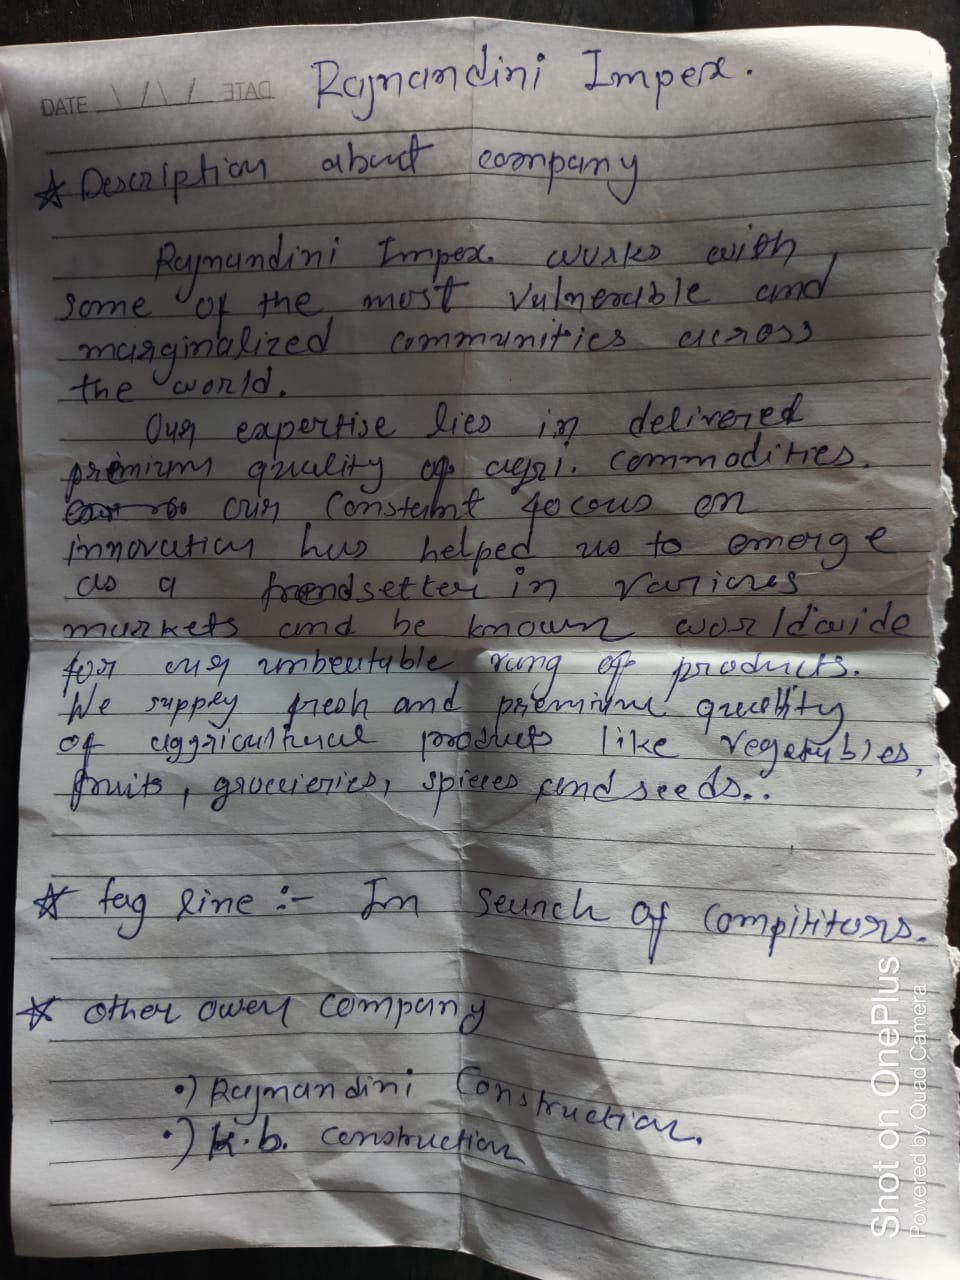 Rajnandini Impex.
DATE
DATE
☆ Description about company
Rajnandini Impex. works with
some of the most vulnerable and
marginalized communities across
the world.
Our expertise lies in delivered
premium quality of agri. commodities.
our constant focous on
innovation has helped us to emerge
as a trendsetter in various
markets and be known worldwide
for our unbeatable rang of products.
We supply fresh and premium quality
of aggricultural products like vegetables,
fruits, grocieries, spices and seeds..
☆ tag line :- In search of compititors.
☆ other ower company
•) Rajnandini Construction.
•) K.b. construction
Shot on OnePlus
Powered by Quad Camera